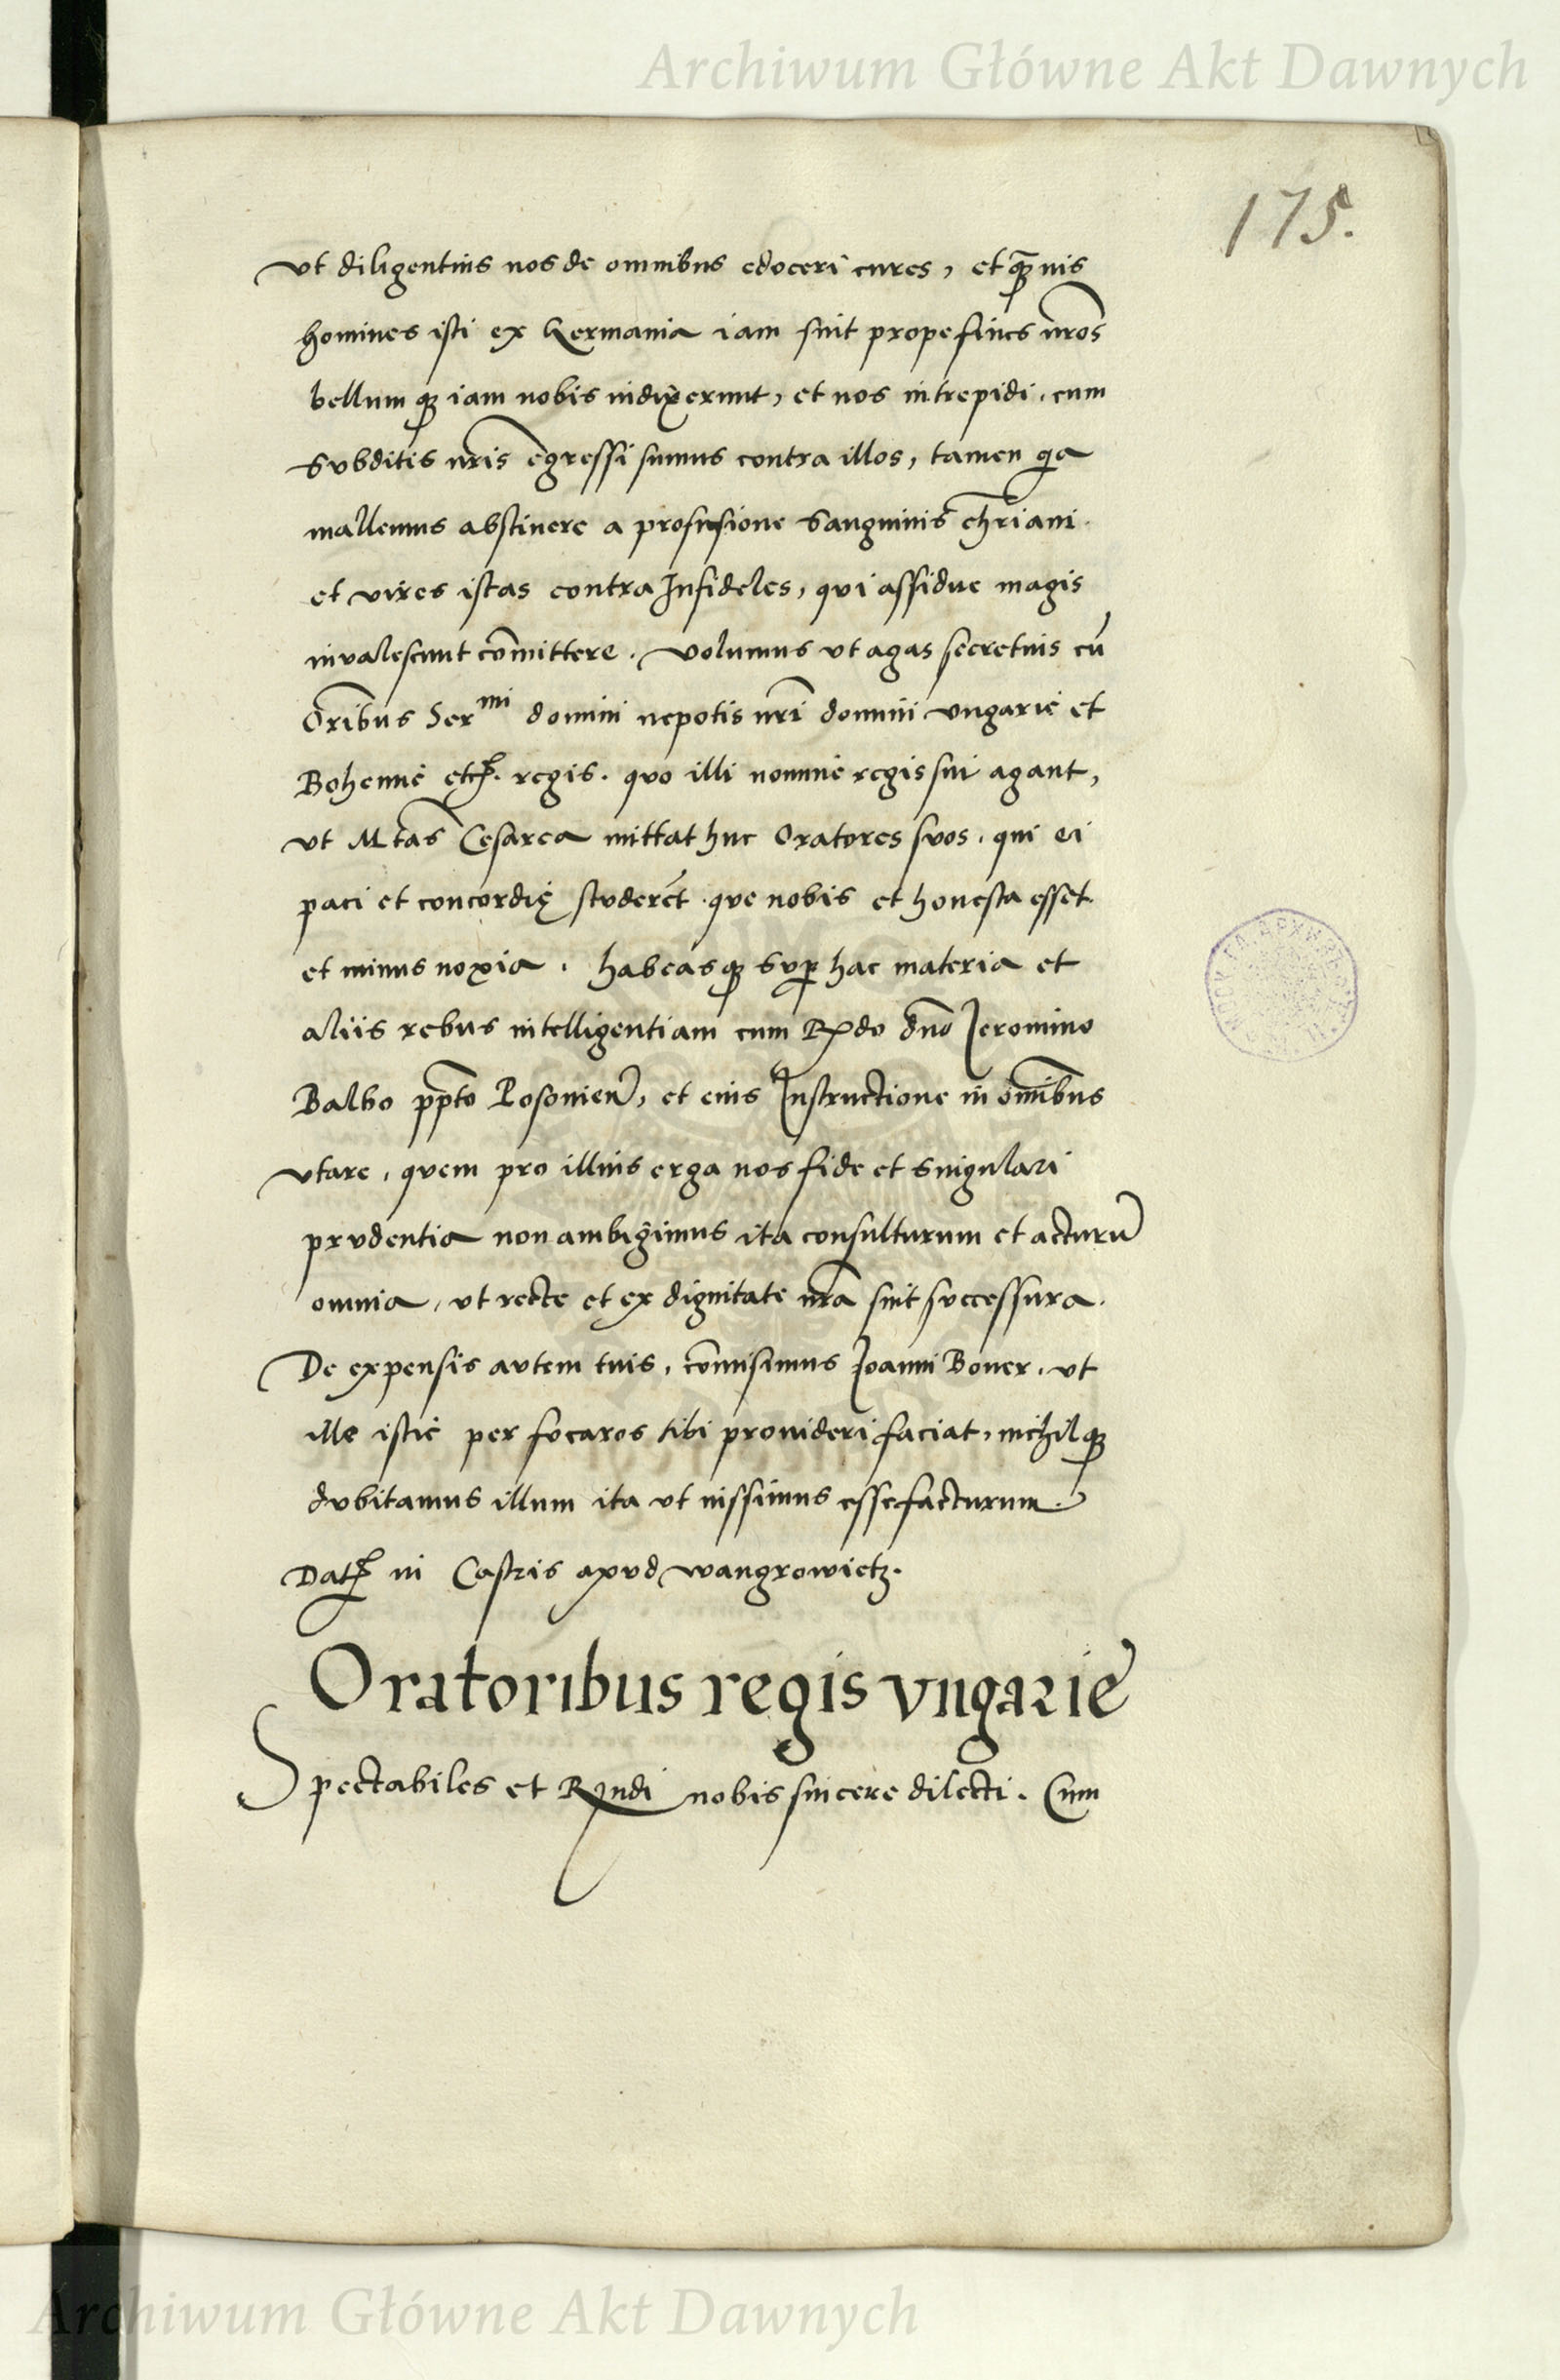 Archiwum Główne Akt Dawnych
175.
vt diligentius nos de omnibus edoceri cures, et qꝫuis
homines isti ex Germania iam sint prope fines nr̃os
bellum qꝫ iam nobis indixerunt, et nos intrepidi, cum
Svbditis nr̃is egressi sumus contra illos, tamen qia
mallemus abstinere a profusione Sanguinis chr̃iani.
et vires istas contra Infideles, qvi assidve magis
invalescunt com̃ittere. volumus vt agas secretius cũ
Or̃ibus Ser mi domini nepotis nr̃i domini vngarie et
Bohemie etcꝫ. regis. qvo illi nomine regis sui agant,
vt M tas Cesarea mittat huc Oratores svos, qui ei
paci et concordię stvderẽt. qve nobis et honesta esset
et minus noxia. habeasqꝫ Svp̱ hac materia et
aliis rebus intelligentiam cum R do dn̄o Jeromino
Balbo pp̄to Posonien̄, et eius Instructione in om̃ibus
vtare, qvem pro illius erga nos fide et Singulari
prvdentia non ambigimus ita consulturum et acturũ
omnia, vt recte et ex dignitate nr̃a sint svccessura.
De expensis avtem tuis, com̃isimus Joanni Boner, vt
ille istic per focaros tibi provideri faciat, nichilqꝫ
dvbitamus illum ita vt iussimus esse facturum.
Datꝫ in Castris apvd wangrowietz.
Oratoribus regis vngarie
Spectabiles et Rndi nobis sincere dilecti. Cum
Archiwum Główne Akt Dawnych